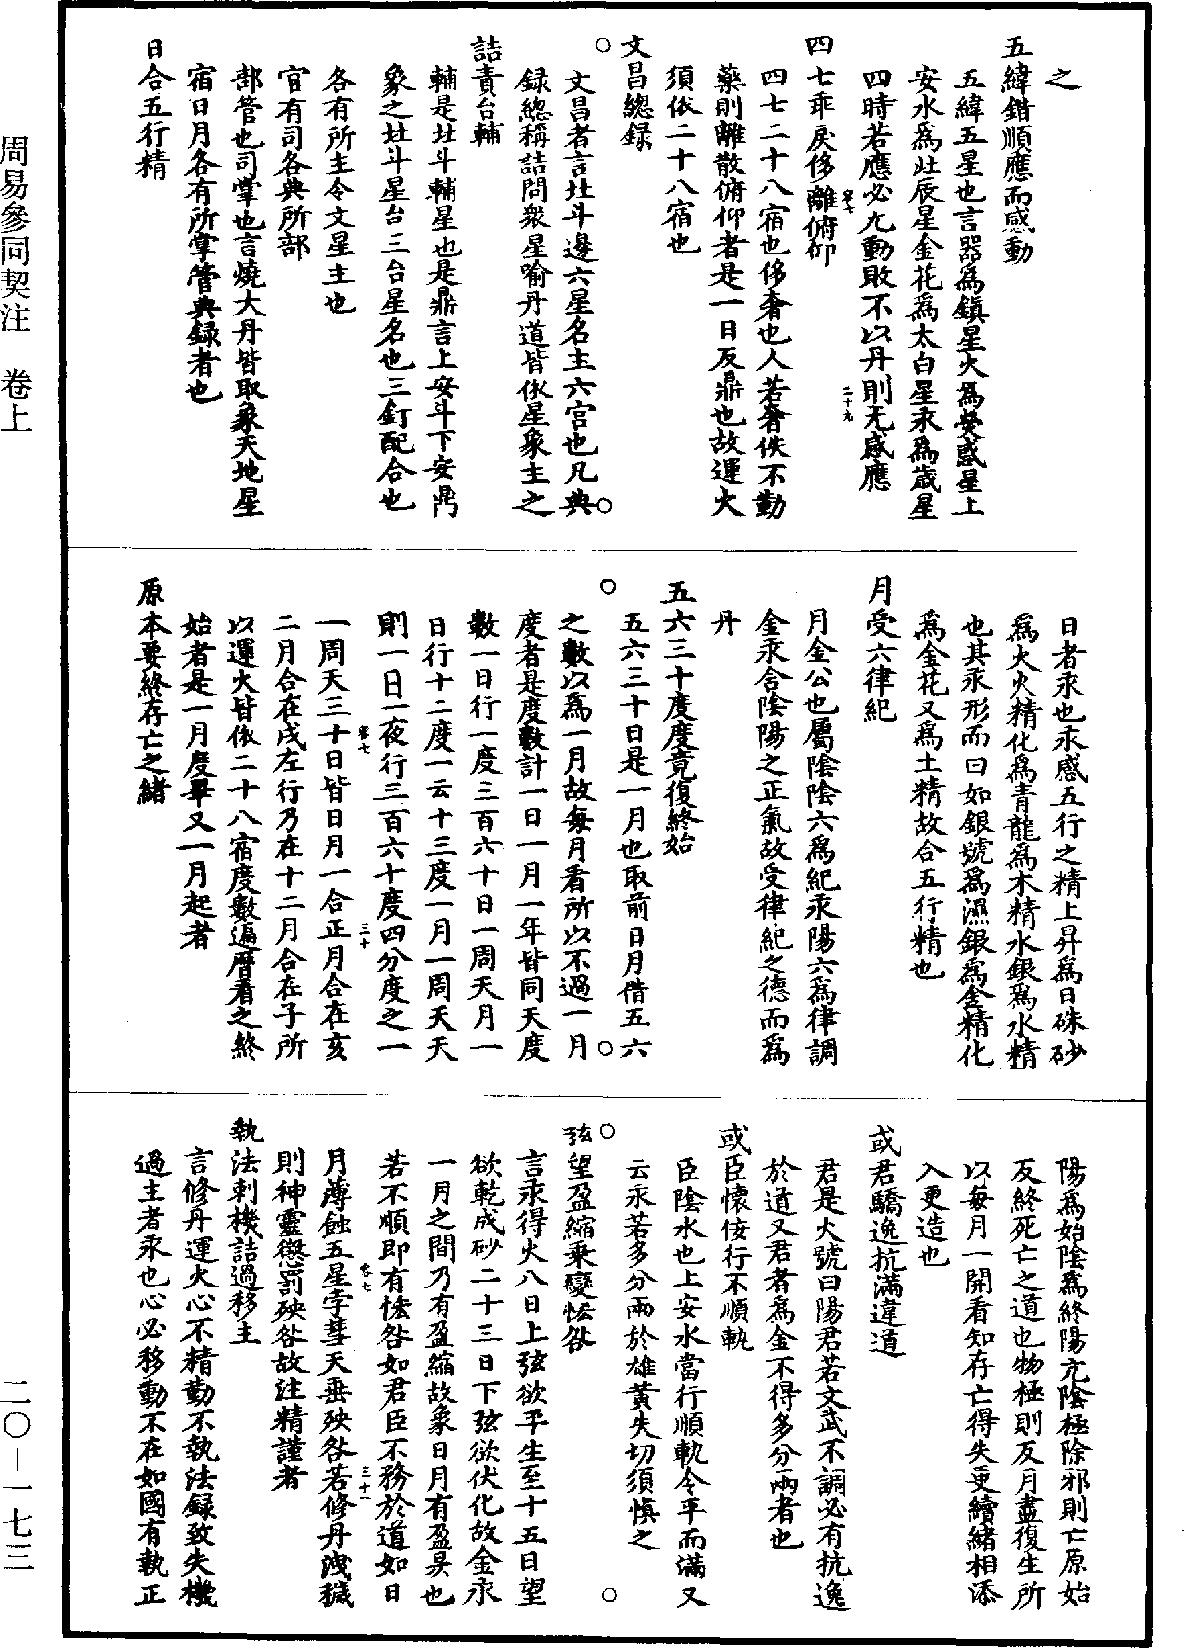 之
五緯錯順應而感動
五緯五星也言器爲鎮星火爲熒惑星上
安水爲北辰星金花爲太白星汞爲歲星
四時若應必九動敗不以丹則无感應
四七乖戾侈離俯仰
四七二十八宿也侈奢也人若奢佚不勤
藥則離散俯仰者是一日反鼎也故運火
須依二十八宿也
文昌總録
文昌者言北斗邊六星名主六宫也凡典
録總稱詰問衆星喻丹道皆依星象主之
詰責台輔
輔是北斗輔星也是鼎言上安斗下安鼎
象之北斗星台三台星名也三釘配合也
各有所主令文星主也
官有司各典所部
部管也司掌也言燒大丹皆取象天地星
宿日月各有所掌管典録者也
日合五行精
日者汞也汞感五行之精上昇爲日硃砂
爲火火精化爲青龍爲木精水銀爲水精
也其汞形而曰如銀號爲濕銀爲金精化
爲金花又爲土精故合五行精也
月受六律紀
月金公也屬陰陰六爲紀汞陽六爲律調
金汞含陰陽之正氣故受律紀之德而爲
丹
五六三十度度竟復終始
五六三十日是一月也取前日月借五六
之數以爲一月故每月看所以不過一月
度者是度數計一日一月一年皆同天度
數一日行一度三百六十日一周天月一
日行十二度一云十三度一月一周天天
則一日一夜行三百六十度四分度之一
一周天三十日皆日月一合正月合在亥
二月合在戌左行乃在十二月合在子所
以運火皆依二十八宿度數遍曆看之終
始者是一月度畢又一月起者
原本要終存亡之緒
陽爲始陰爲終陽亢陰極除邪則亡原始
反終死亡之道也物極則反月盡復生所
以每月一開看知存亡得失更續緒相添
入更造也
或君驕逸抗滿違道
君是火號曰陽君若文武不調必有抗逸
於道又君者爲金不得多分兩者也
或臣懷佞行不順軌
臣陰水也上安水當行順軌令平而滿又
云汞若多分兩於雄黄失切須慎之
弦望盈縮乘變恡咎
言汞得火八日上弦欲平生至十五日望
欲乾成砂二十三日下弦欲伏化故金汞
一月之間乃有盈縮故象日月有盈昃也
若不順即有恡咎如君臣不務於道如日
月薄蝕五星孛彗天垂殃咎若修丹洩穢
則神靈愆罰殃咎故注精謹者
執法刺機詰過移主
言修丹運火心不精勤不執法録致失機
過主者汞也心必移動不在如國有執正
周易參同契注 卷上
二〇—一七三
卷七
二十九
卷七
三十
卷七
三十一